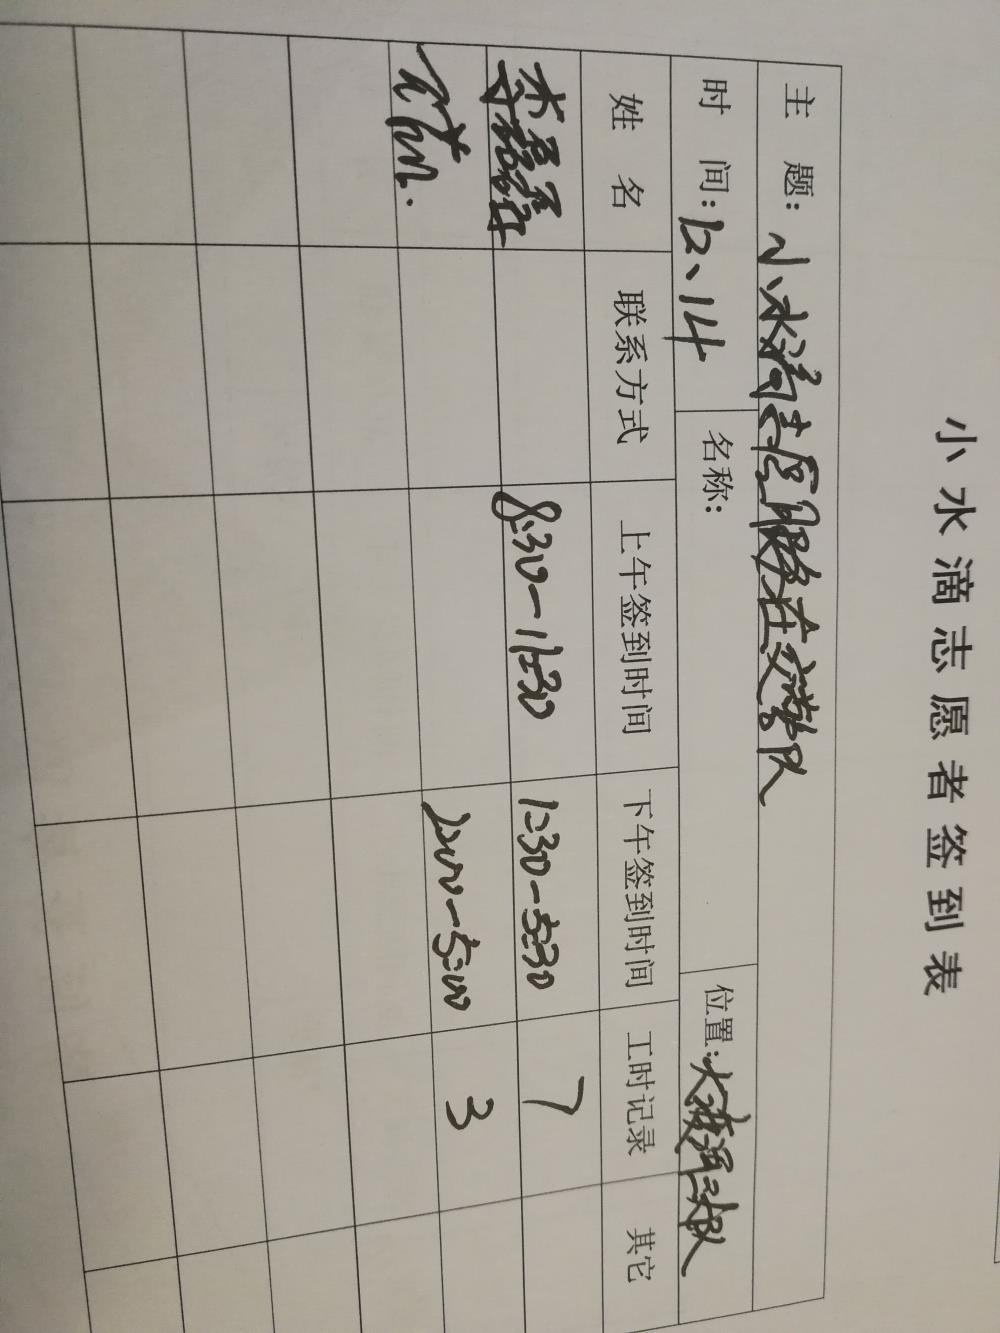 小水滴志愿者签到表
主 题：小水滴志愿服务在交警队
时 间：12、14 名称： 位置：大渡河二大队
姓 名 联系方式 上午签到时间 下午签到时间 工时记录 其它
8:30-11:30 1:30-5:30 7
2:00-5:00 3